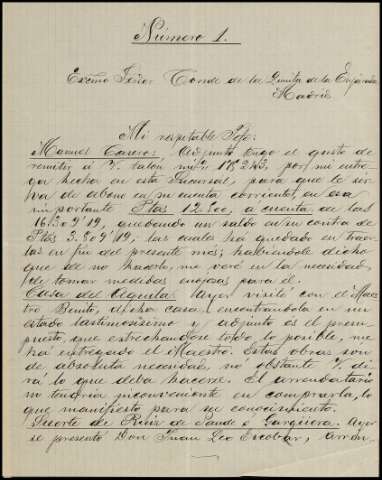 Numero 1.
Excmo Señor Conde de la Quinta de la Enjarada
Madrid
Mi respetable Jefe:
Manuel Casero: Adjunto tengo el gusto de
remitir á V. talón nº 178243, por mi entre
ga hecha en esta Sucursal, para que le sir
va de abono en su cuenta corriente en esa
importante Ptas 12.800, á cuenta de las
16.304'19, quedando un saldo en su contra de
Ptas 3.504'19, las cuales ha quedado en traer
las en fin del presente mes; habiendole dicho
que de no hacerlo, me veré en la necesidad
de tomar medidas enojosas para el.
Casa del Aguila: Ayer visité con el Maes
tro Benito, dicha casa, encontrandola en un
estado lastimosisimo y adjunto es el presu
puesto, que estrechandose todo lo posible, me
ha entregado el Maestro. Estas obras son
de absoluta necesidad, no obstante V. di
rá lo que deba hacerse. El arrendatario
no tendria inconveniente en comprarla, lo
que manifiesto para su conocimiento.
Suerte de Ruiz de Sande é Garguera. Ayer
se presentó Don Juan Leo Escobar, arren-